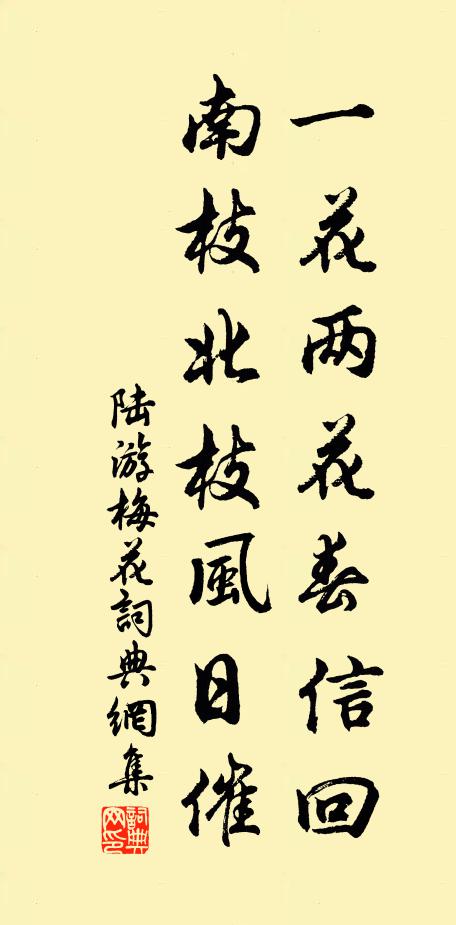 一花两花春信回
南枝北枝風日催
陆游梅花詞典網集
詞典网印